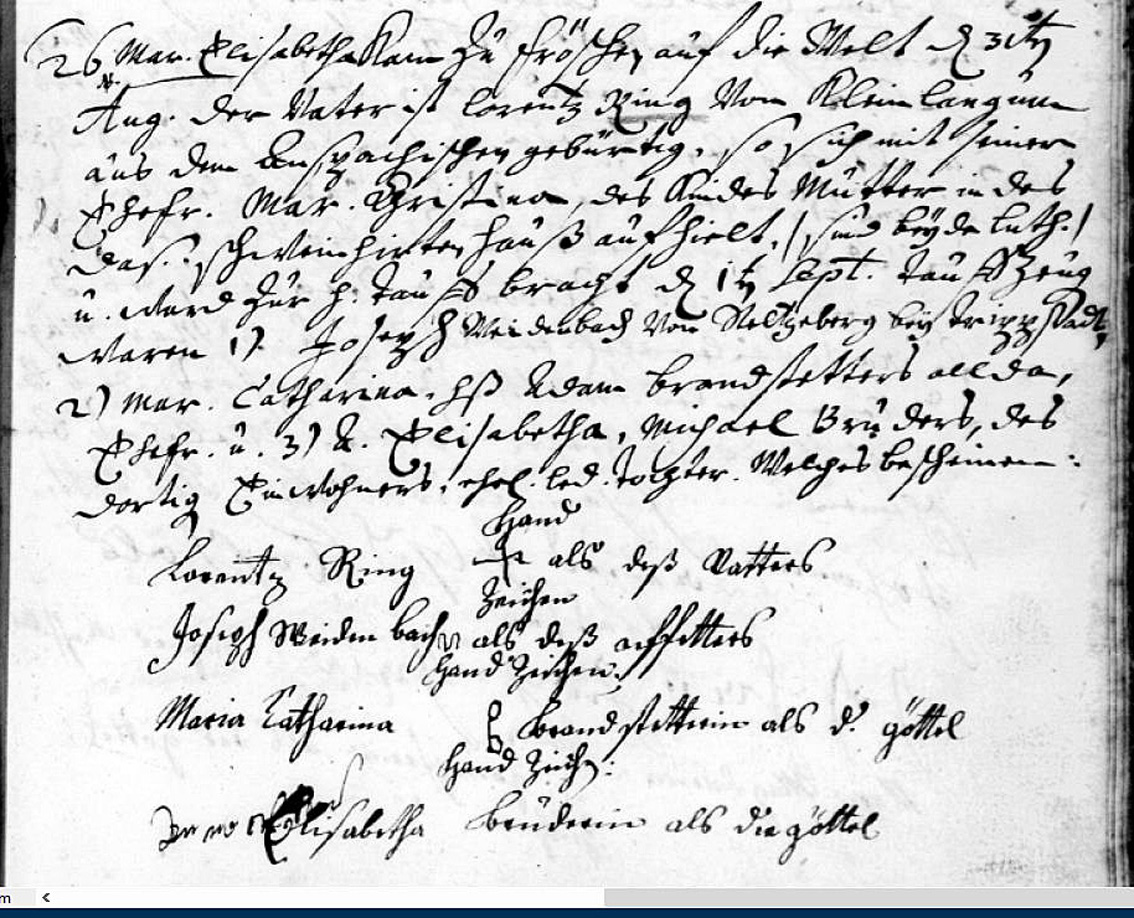 26 Mar. Elisabetha Kam zu Fröschen auf die Welt d 31ten
Aug. der Vater ist Lorentz Ring Vom Klein
aus dem Anspachischen gebürtig, so sich mit seiner
Ehefr. Mar. Christina, des Kindes Mutter in des
das. schweinhirten hauß aufhielt, /: sind beyde luth. /
u. ward zur h. Tauff bracht d 1ten Sept. Tauff Zeug
waren 1) Joseph Weidenbach Vom bey Trippstadt,
2) Mar. Catharina, Adam Brandstetters allda,
Ehefr. u. 3) Elisabetha, Michael Brüders, des
dortig Einwohners, ehel. led. tochter. Welches bescheinen:
Hand
Lorentz Ring als deß Vatters
Zeichen
Joseph Weidenbach als deß
Hand Zeichen:
Maria Catharina Brandstetterin als d. göttel
Hand Zeich:
Elisabetha Brüderin als die göttel
m <